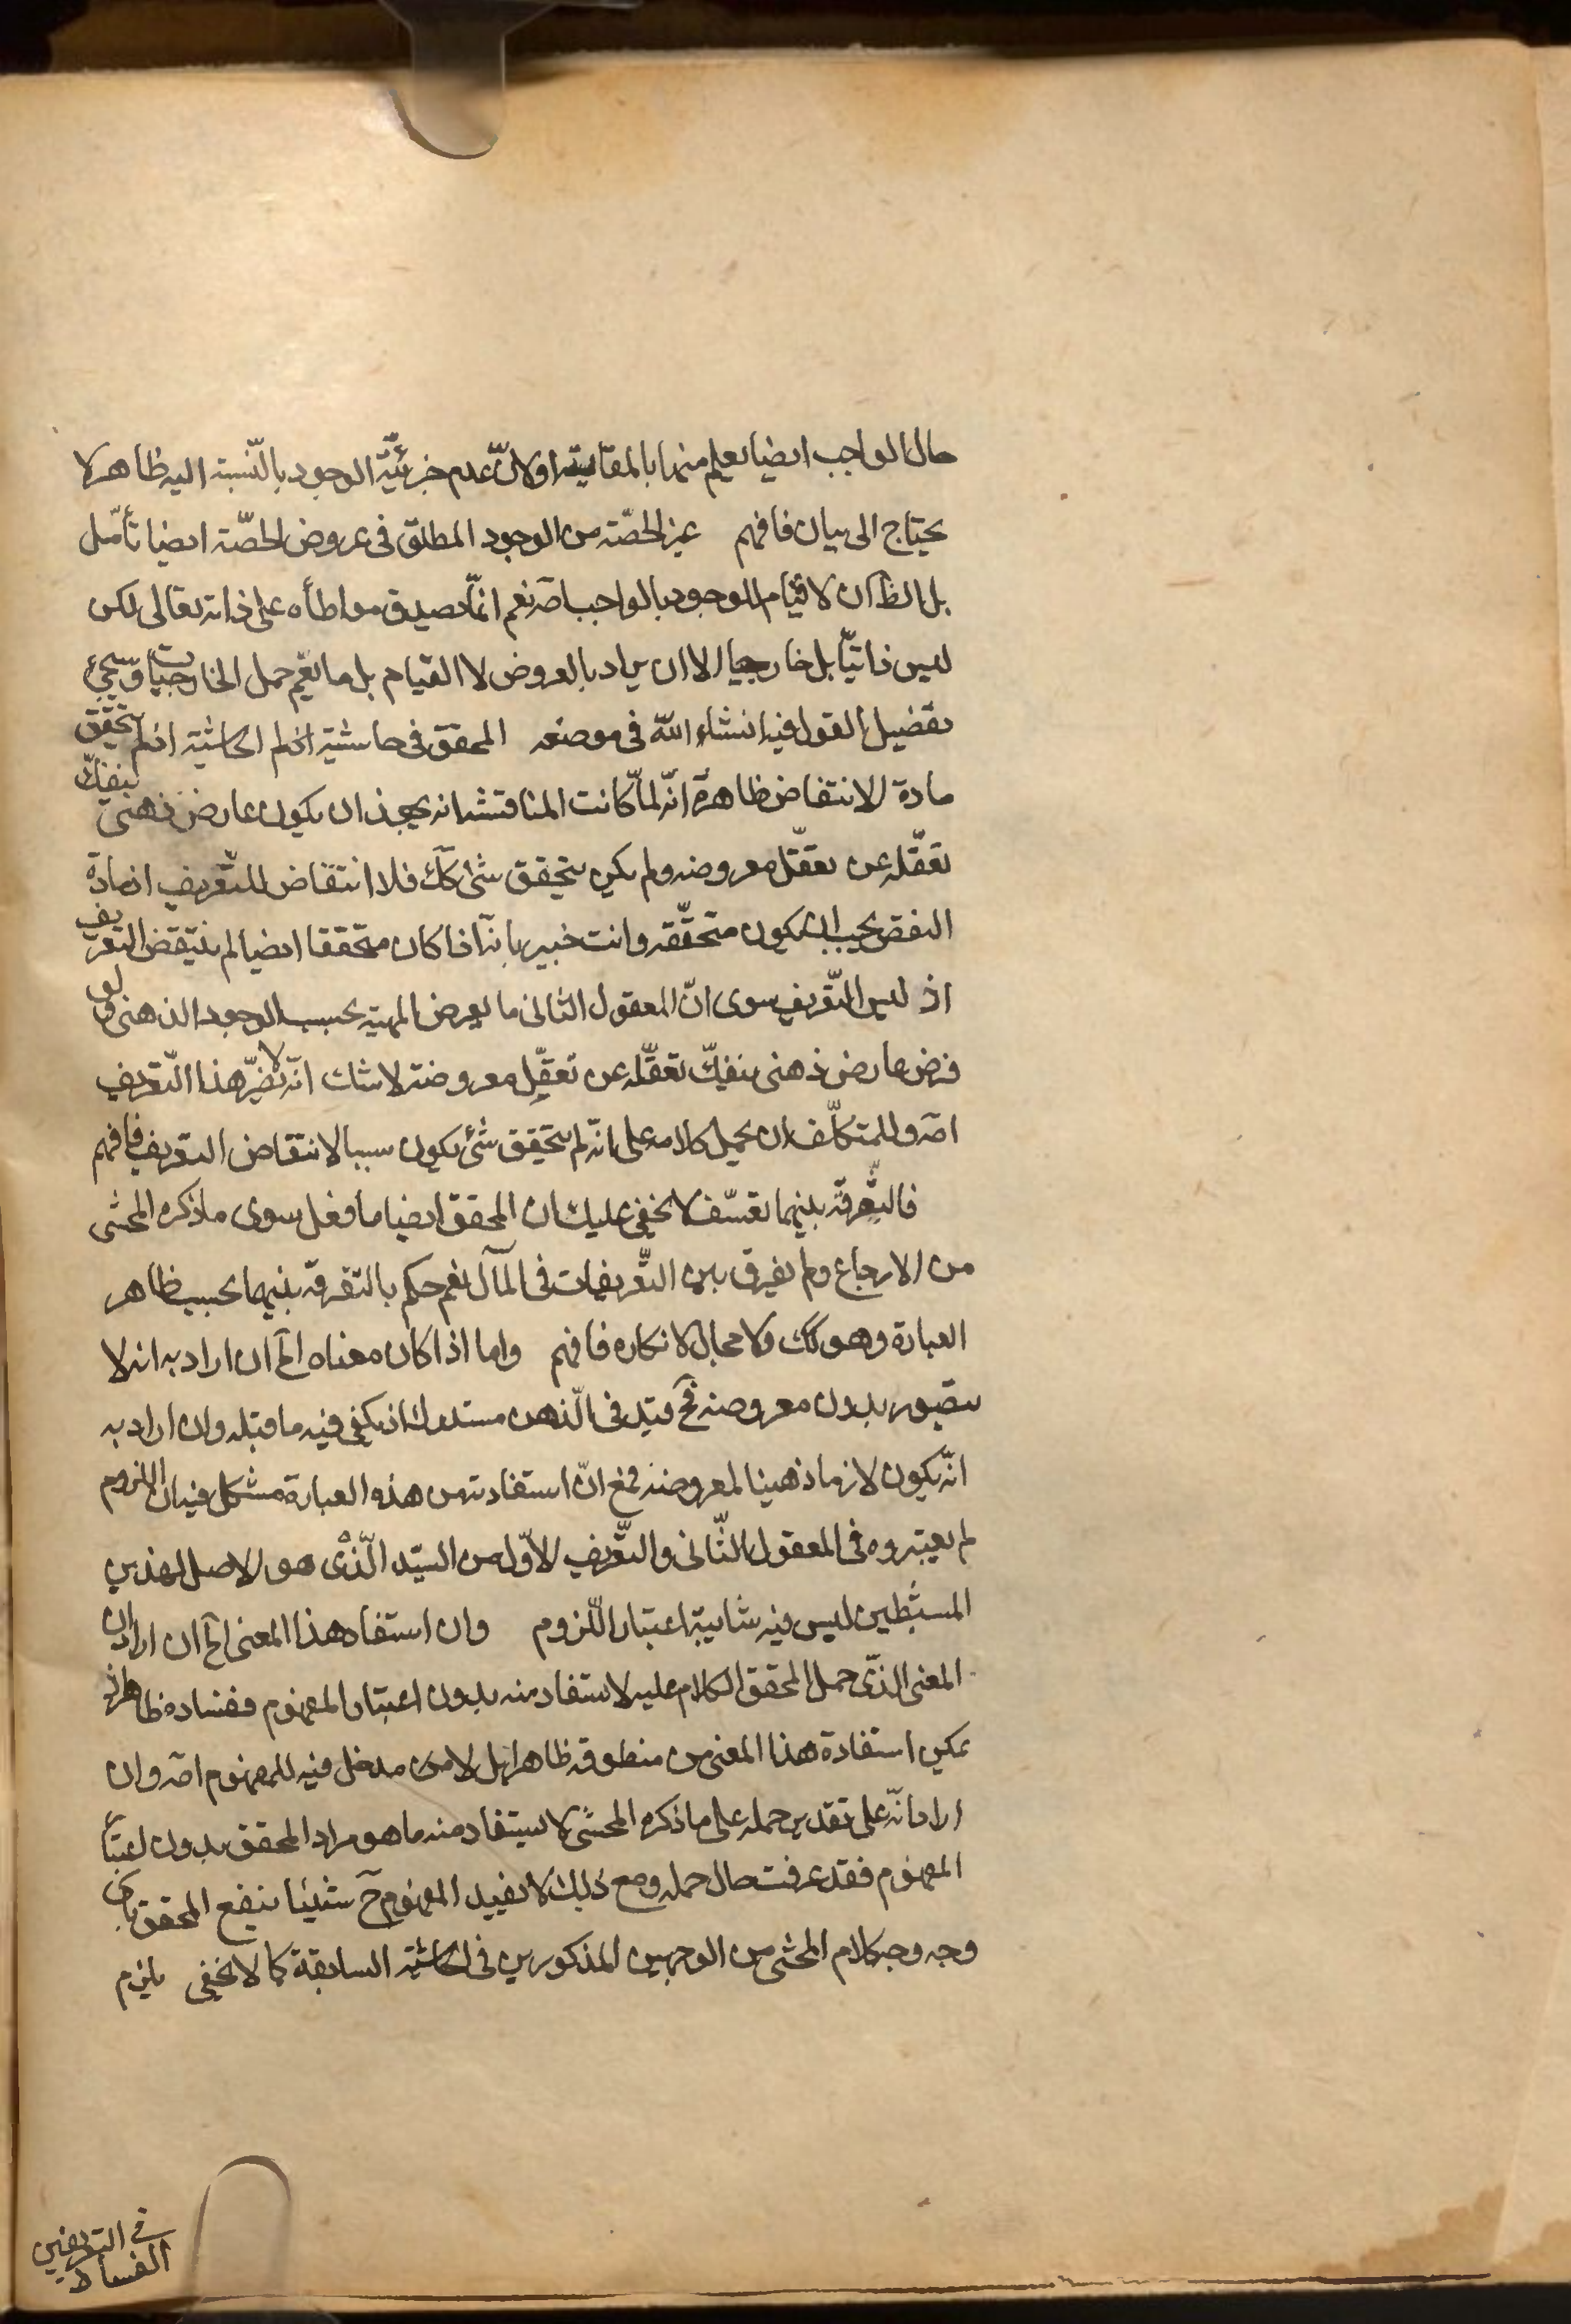 حال الواجب ايضا يعلم منها بالمقايسة او لانّ عدم جزئيّة الوجود بالنّسبة اليه ظاهر لا
يحتاج الى بيان فافهم غير الحصّة من الوجود المطلق فى عروض الحصّة ايضا تأمّل
بل الظ ان لا قيام للوجود بالواجب اصه نعم انّما يصدق مواطأه على ذاته تعالى لكن
ليس ذاتيّا بل خارجيا الا ان يراد بالعروض لا القيام بل ما يعم حمل الخارجيات و سيجئ
تفصيل القول فيه انشاء الله فى موضعه المحقق فى حاشية اخ لم الحاشية اذ لم يتحقق
مادة الانتقاض ظاهره انّه لمّا كانت المناقشة انه يجوز ان يكون عارض ذهنى ينفكّ
تعقّله عن تعقّل معروضه ولم يكن يتحقق شئ كك فلا انتقاض للتّعريف اذ مادة
النقض يجب ان يكون متحقّقه وانت خبير بانّه اذا كان متحققا ايضا لم ينتقض التعريف
اذ ليس التّعريف سوى انّ المعقول الثانى ما يعرض المهية بحسب الوجود الذهنى و لو
فرض عارض ذهنى ينفكّ تعقّله عن تعقّل معروضه لا شك انّه لا يضرّ هذا التّعريف
اصه وللمتكلّف ان يحمل كلامه على انّه لم يتحقق شئ يكون سببا لانتقاض التعريف فافهم
فالتّفرقة بينهما تعسّف لا يخفى عليك ان المحقق ايضا ما فعل سوى ما ذكره المحشى
من الارجاع ولم يفرق بين التّعريفات فى المآل نعم حكم بالتفرقة بينهما بحسب ظاهر
العبارة وهو كك ولا مجال لانكاره فافهم واما اذا كان معناه الخ ان اراد به انه لا
يتصور بدون معروضه فح قيد فى الّذهن مستدرك اذ يكفى فيه ما قبله وان اراد به
انّه يكون لازما ذهنيا لمعروضه فمع انّ استفادته من هذه العبارة مشكل فيه ان اللزوم
لم يعتبروه فى المعقول الثّانى والتّعريف الاوّل من السيّد الّذى هو الاصل لهذين
ليس فيه شايبة اعتبار اللّزوم وان استفاد هذا المعنى الخ ان اراد ان
المعنى الذّى حمل المحقق الكلام عليه لا ستفاد منه بدون اعتبار المفهوم ففساده ظاهر اذ
يمكن استفادة هذا المعنى من منطوقه ظاهرا بل لا مدخل فيه للمفهوم اصه وان
اراد انّه على تقدير حمله على ما ذكره المحشى لا يستفاد منه ما هو مراد المحقق بدون اعتبار
المفهوم فقد عرفت حال حمله ومع ذلك لا يفيد المفهوم ح شيئا ينفع المحقق باى
وجه وجه كلام المحشى من الوجهين المذكورين فى الحاشية السابقة كما لا يخفى يلزم
الفساد
فى التعريفين